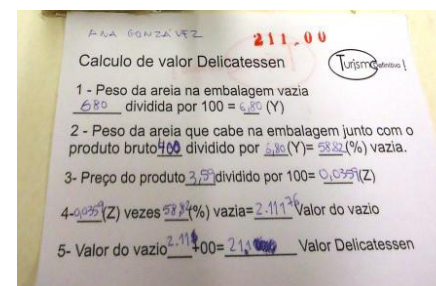 ANA GONZÁVEZ
211,00
Calculo de valor Delicatessen
Turismo definitivo!
1 - Peso da areia na embalagem vazia
680 dividida por 100 = 6,80 (Y)
2 - Peso da areia que cabe na embalagem junto com o
produto bruto 400 dividido por 6,80 (Y)= 5882 (%) vazia.
3- Preço do produto 3,59 dividido por 100= 0,0359 (Z)
4- 0,0359 (Z) vezes 58,82 (%) vazia= 2.111 76 Valor do vazio
5- Valor do vazio 2.111 +00= 21,1 Valor Delicatessen